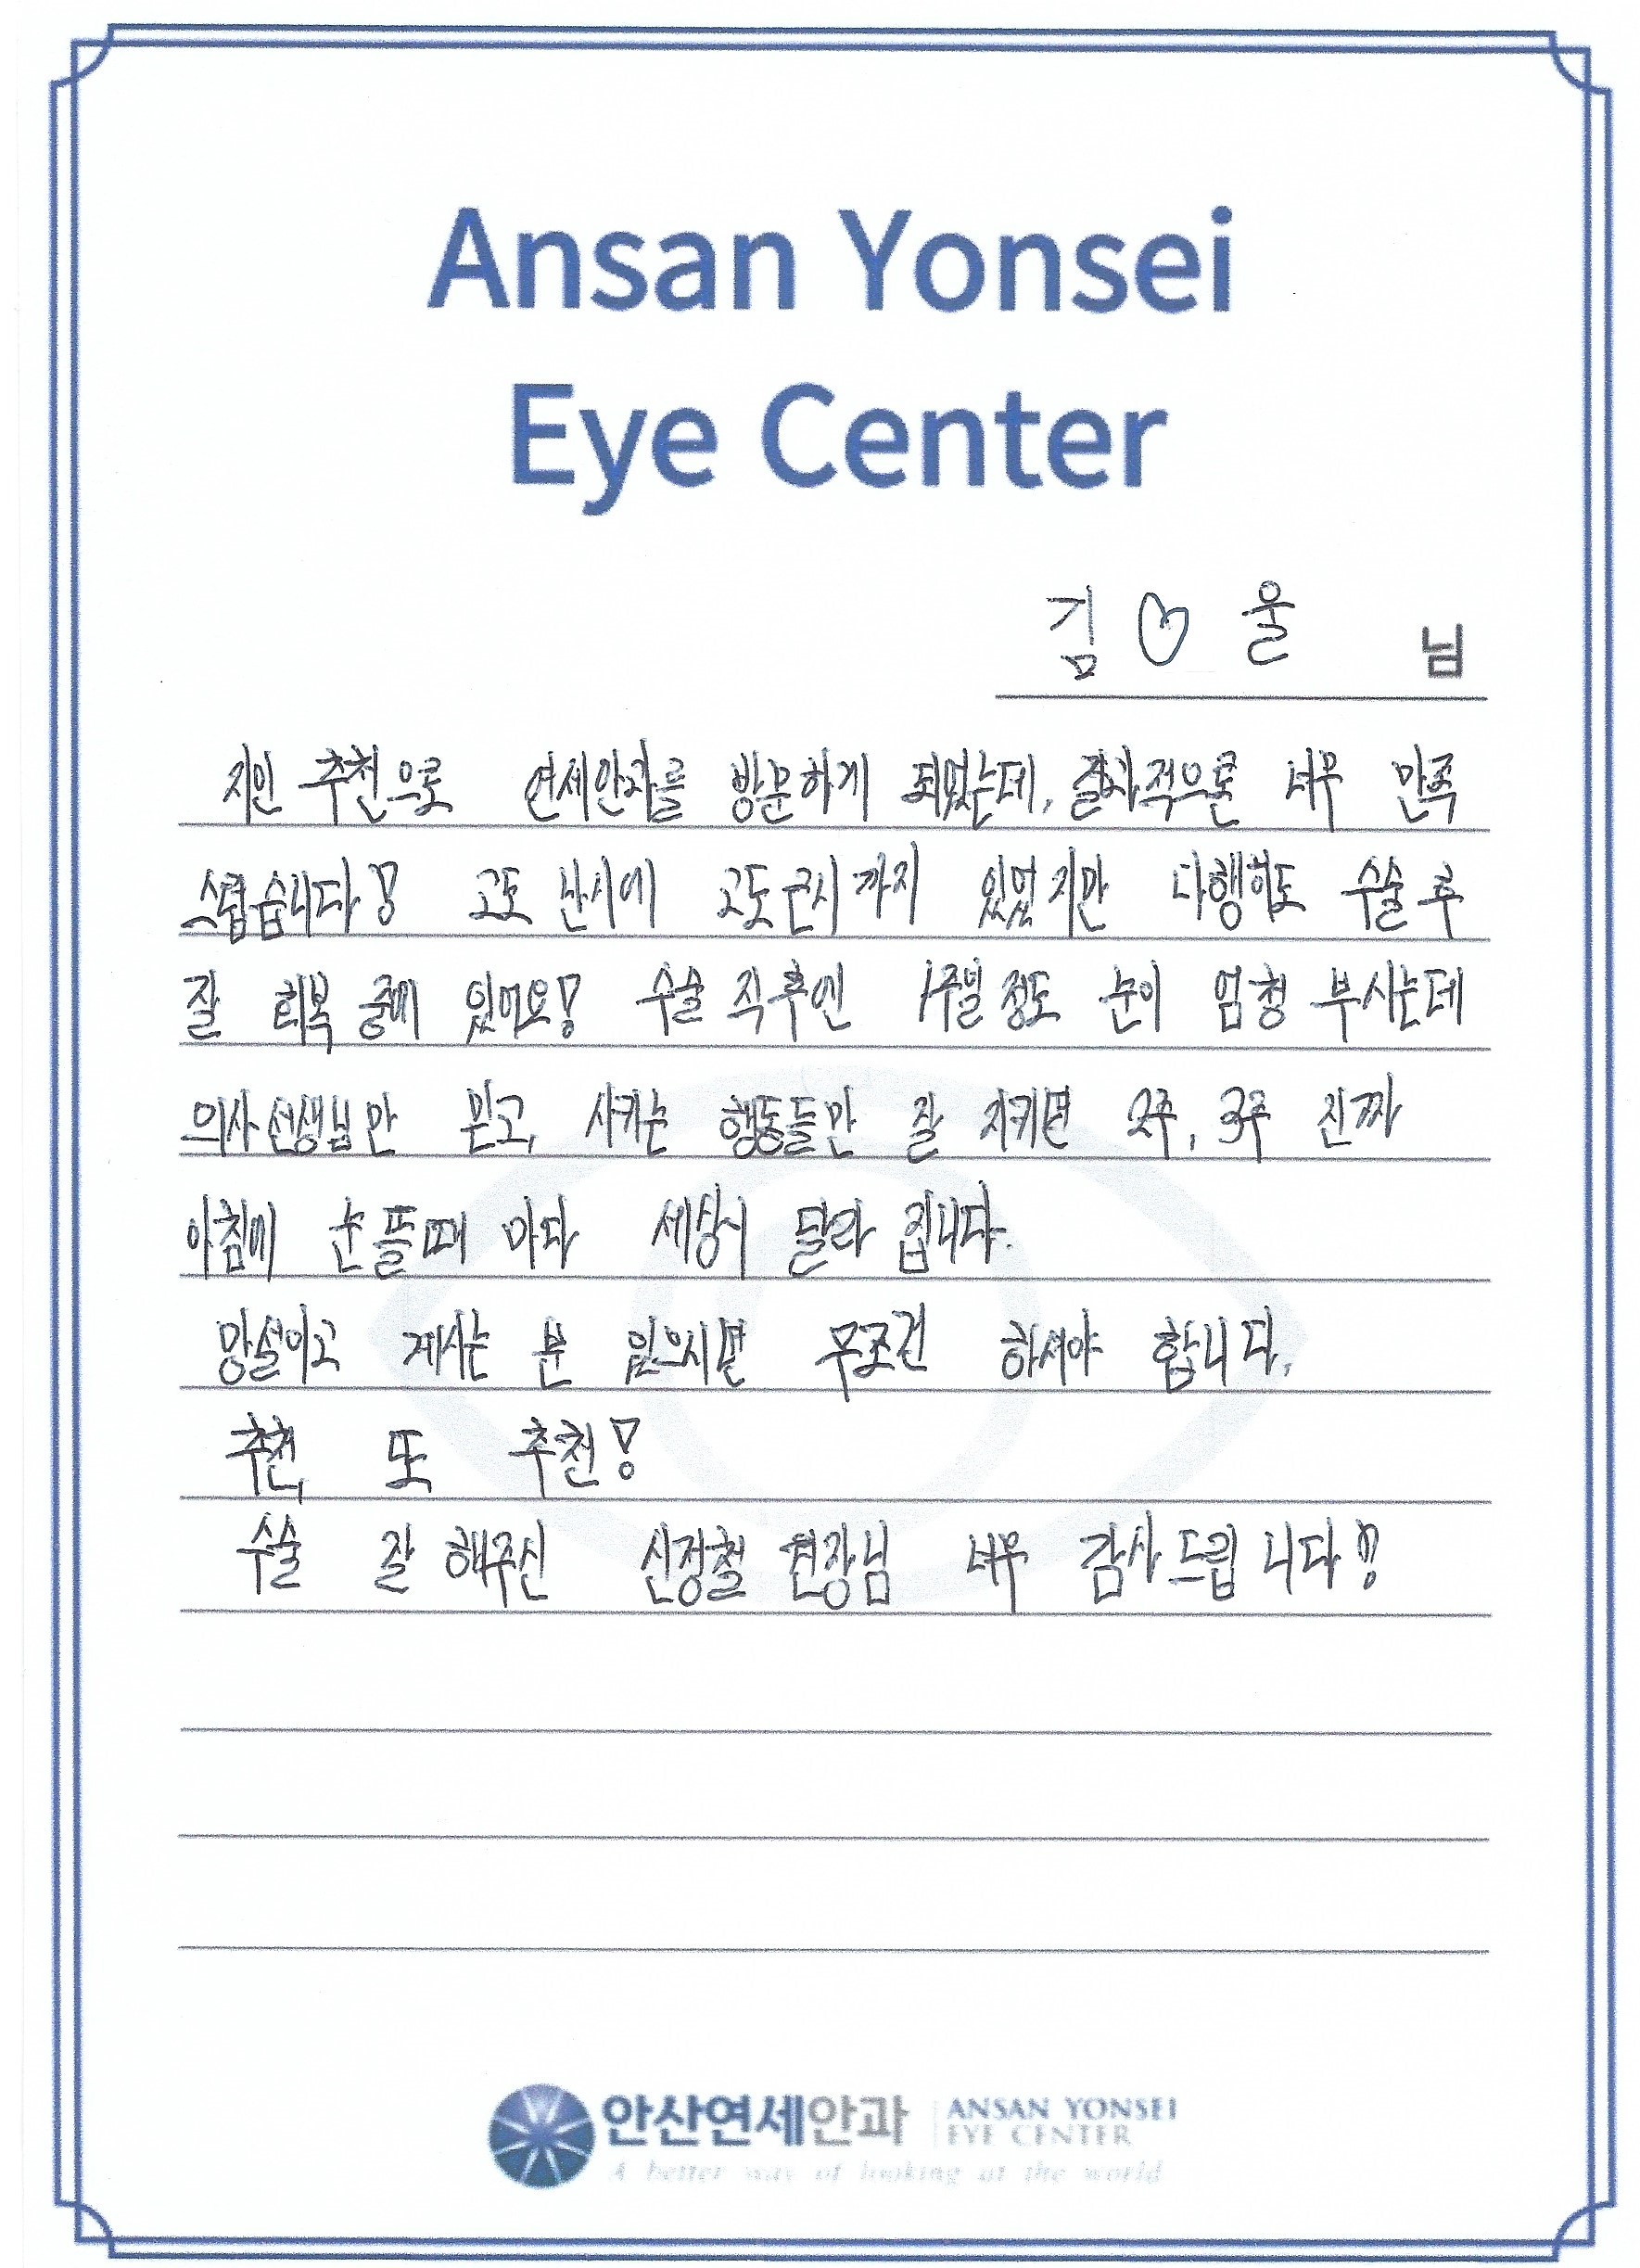 Ansan Yonsei
Eye Center
김♡울 님
지인 추천으로 연세안과를 방문하게 되었는데, 결과적으론 너무 만족
스럽습니다! 고도 난시에 고도근시까지 있었지만 다행히도 수술 후
잘 회복 중에 있어요! 수술 직후엔 1주일 정도 눈이 엄청 부시는데
의사선생님만 믿고, 시키는 행동들만 잘 지키면 2주, 3주 진짜
아침에 눈 뜰때 마다 세상이 달라 집니다.
망설이고 계시는 분 있으시면 무조건 하셔야 합니다.
추천 또 추천!
수술 잘 해주신 신정철 원장님 너무 감사드립니다!
안산연세안과 ANSAN YONSEI
EYE CENTER
A better way of looking at the world